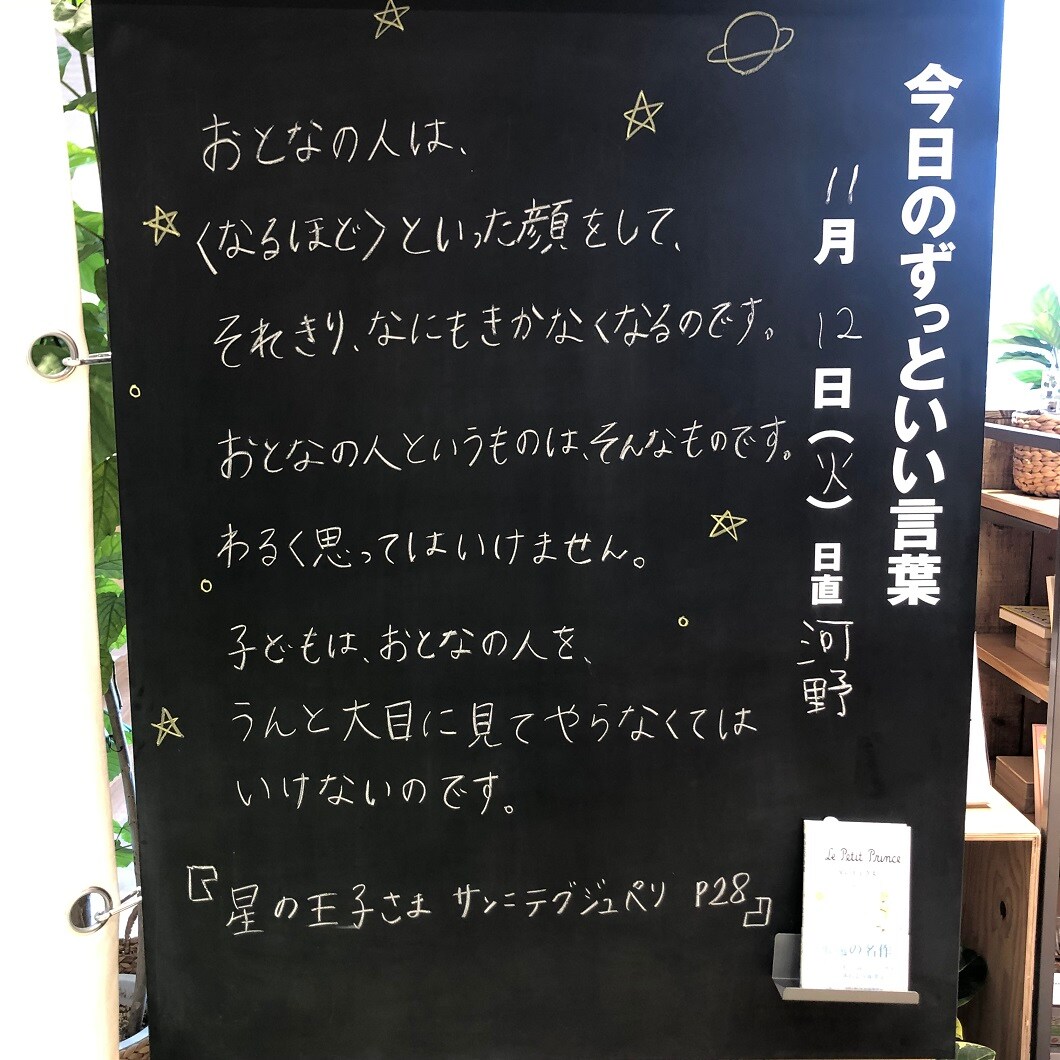 今日のずっといい言葉
11月12日(火) 日直 河野
おとなの人は、
〈なるほど〉といった顔をして、
それきり、なにもきかなくなるのです。
おとなの人というものは、そんなものです。
わるく思ってはいけません。
子どもは、おとなの人を、
うんと大目に見てやらなくては
いけないのです。
『星の王子さま サン=テグジュペリ P28』
Le Petit Prince
の名作